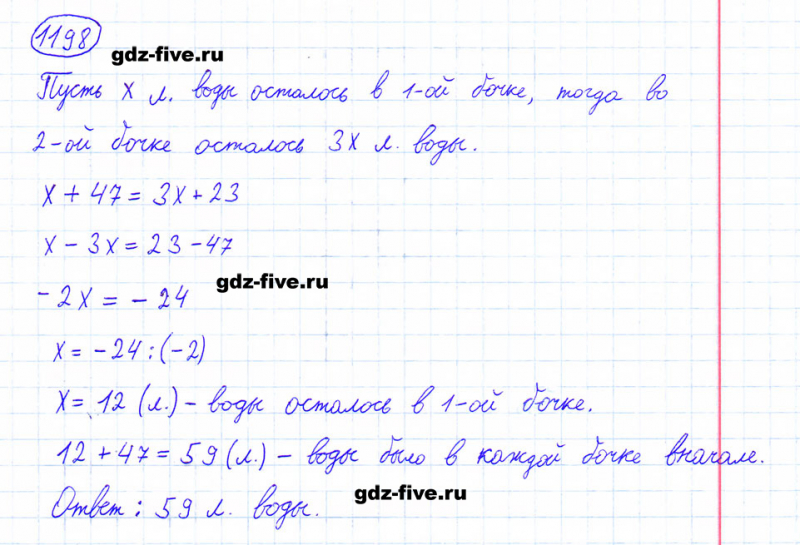 1198
gdz-five.ru
Пусть x л. воды осталось в 1-ой бочке, тогда во
2-ой бочке осталось 3x л. воды.
x + 47 = 3x + 23
x - 3x = 23 - 47
gdz-five.ru
-2x = -24
x = -24 : (-2)
x = 12 (л.) - воды осталось в 1-ой бочке.
12 + 47 = 59 (л.) - воды было в каждой бочке вначале.
gdz-five.ru
Ответ: 59 л. воды.